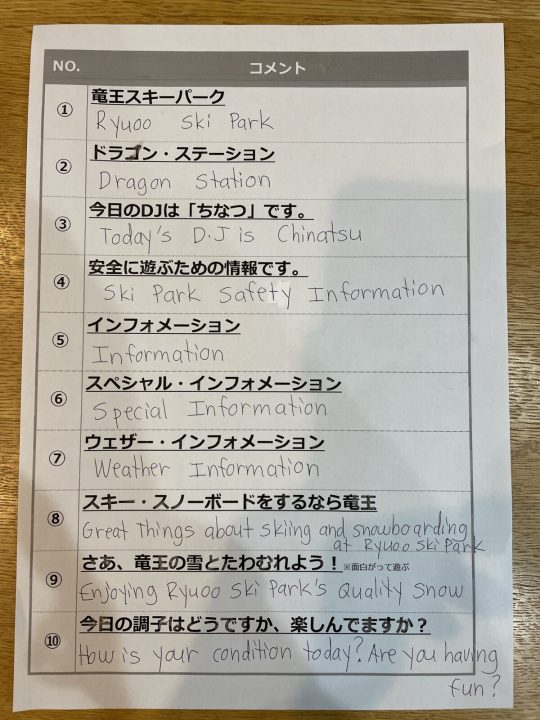 NO. コメント
① 竜王スキーパーク
Ryuoo Ski Park
② ドラゴン・ステーション
Dragon Station
③ 今日のDJは「ちなつ」です。
Today's D.J is Chinatsu
④ 安全に遊ぶための情報です。
Ski Park Safety Information
⑤ インフォメーション
Information
⑥ スペシャル・インフォメーション
Special Information
⑦ ウェザー・インフォメーション
Weather Information
⑧ スキー・スノーボードをするなら竜王
Great Things about skiing and snowboarding
at Ryuoo Ski Park
⑨ さあ、竜王の雪とたわむれよう！※面白がって遊ぶ
Enjoying Ryuoo Ski Park's Quality Snow
⑩ 今日の調子はどうですか、楽しんでますか？
How is your condition today? Are you having
fun?